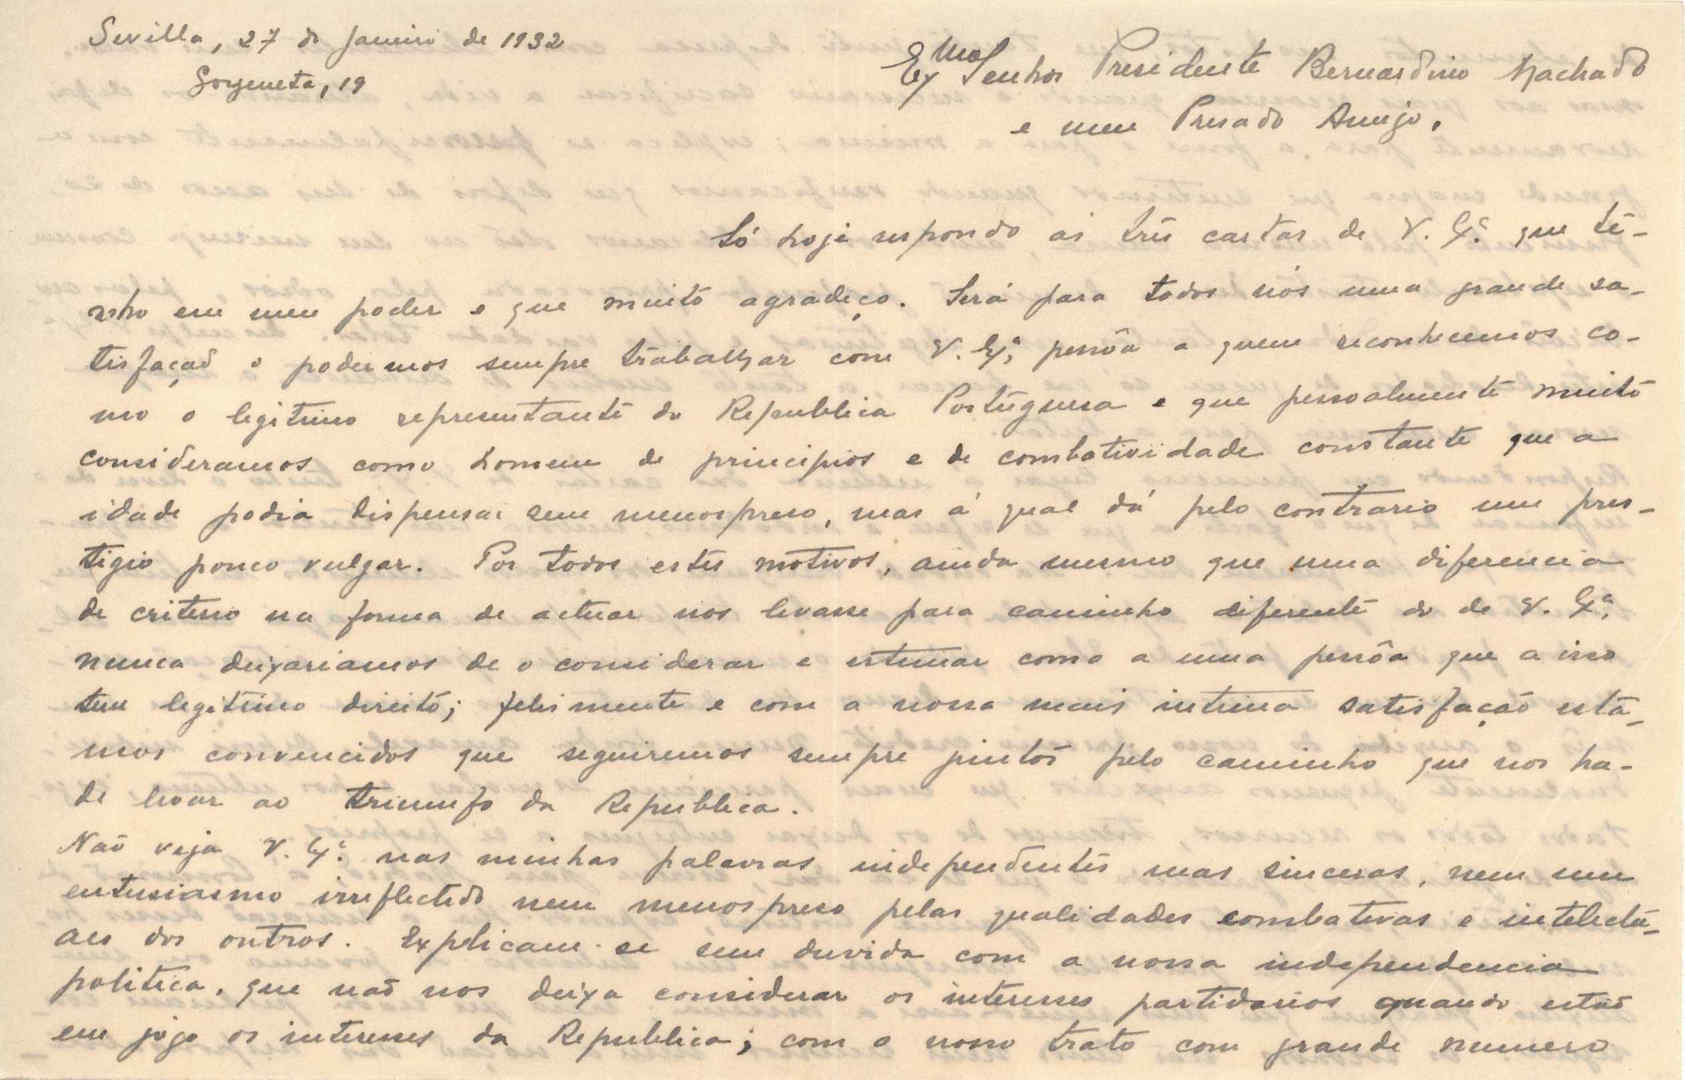 Sevilla, 27 de Janeiro de 1932
Goyeneta, 19
Exmo Senhor Presidente Bernardino Machado
e meu Presado Amigo.
Só hoje respondo ás três cartas de V. Exª. que te-
nho em meu poder e que muito agradeço. Será para todos nós uma grande sa-
tisfação o podermos sempre trabalhar com V. Exª, pessôa a quem reconhecemos co-
mo o legitimo representante da Republica Portuguesa e que pessoalmente muito
consideramos como homem de principios e de combatividade constante que a
idade podia dispensar sem menospreso, mas á qual dá pelo contrario um pres-
tigio pouco vulgar. Por todos estes motivos, ainda mesmo que uma diferencia
de criterio na forma de actuar nos levasse para caminho diferente do de V. Exª.
nunca deixariamos de o considerar e estimar como a uma pessôa que a isso
tem legitimo direito; felismente e com a nossa mais intima satisfação está-
mos convencidos que seguiremos sempre juntos pelo caminho que nos ha-
de levar ao triunfo da Republica.
Não veja V. Exª. nas minhas palavras independentes mas sinceras, nem um
entusiasmo irreflectido nem menospreso pelas qualidades combativas e intelectu-
aes dos outros. Explicam-se sem duvida com a nossa independencia
politica, que não nos deixa considerar os interesses partidarios quando estão
em jogo os interesses da Republica; com o nosso trato com grande numero